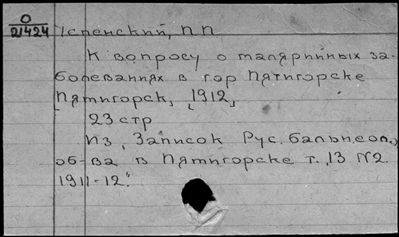 О
21424
Успенский, П П
К вопросу о малярийных за-
болеваниях в гор Пятигорске
Пятигорск, 1912,
23 стр
Из „Записок Рус. бальнеол.
об-ва в Пятигорске т. 13 №2
1911-12."